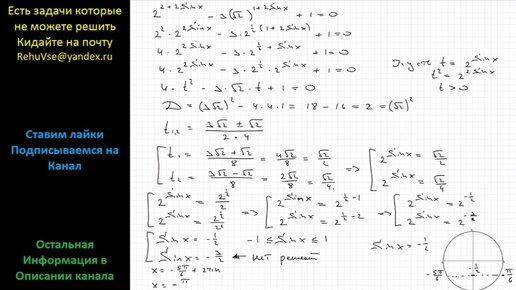 Есть задачи которые
не можете решить
Кидайте на почту
RehuVse@yandex.ru
Ставим лайки
Подписываемся на
Канал
Остальная
Информация в
Описании канала
2^(2+2Sinx) - 3(√2)^(1+2Sinx) + 1 = 0
2^2 · 2^(2Sinx) - 3·2^(1/2(1+2Sinx)) + 1 = 0
4·2^(2Sinx) - 3·2^(1/2+Sinx) + 1 = 0
4·2^(2Sinx) - 3·2^(1/2)·2^(Sinx) + 1 = 0
Пусть t = 2^(Sinx)
t^2 = 2^(2Sinx)
t > 0
4·t^2 - 3·√2·t + 1 = 0
D = (3√2)^2 - 4·4·1 = 18 - 16 = 2 = (√2)^2
t1,2 = (3√2 ± √2)/(2·4)
[ t1 = (3√2+√2)/8 = 4√2/8 = √2/2 => [ 2^(Sinx) = √2/2
t2 = (3√2-√2)/8 = 2√2/8 = √2/4. 2^(Sinx) = √2/4
[ 2^(Sinx) = 2^(1/2)/2 => [ 2^(Sinx) = 2^(1/2-1) => [ 2^(Sinx) = 2^(-1/2)
2^(Sinx) = 2^(1/2)/2^2 2^(Sinx) = 2^(1/2-2) 2^(Sinx) = 2^(-3/2)
[ Sinx = -1/2 -1 ≤ Sinx ≤ 1
Sinx = -3/2 ← Нет решений
Sinx = -1/2
-1/2
-5π/6
-π/6
x = -5π/6 + 2πn
x = -π